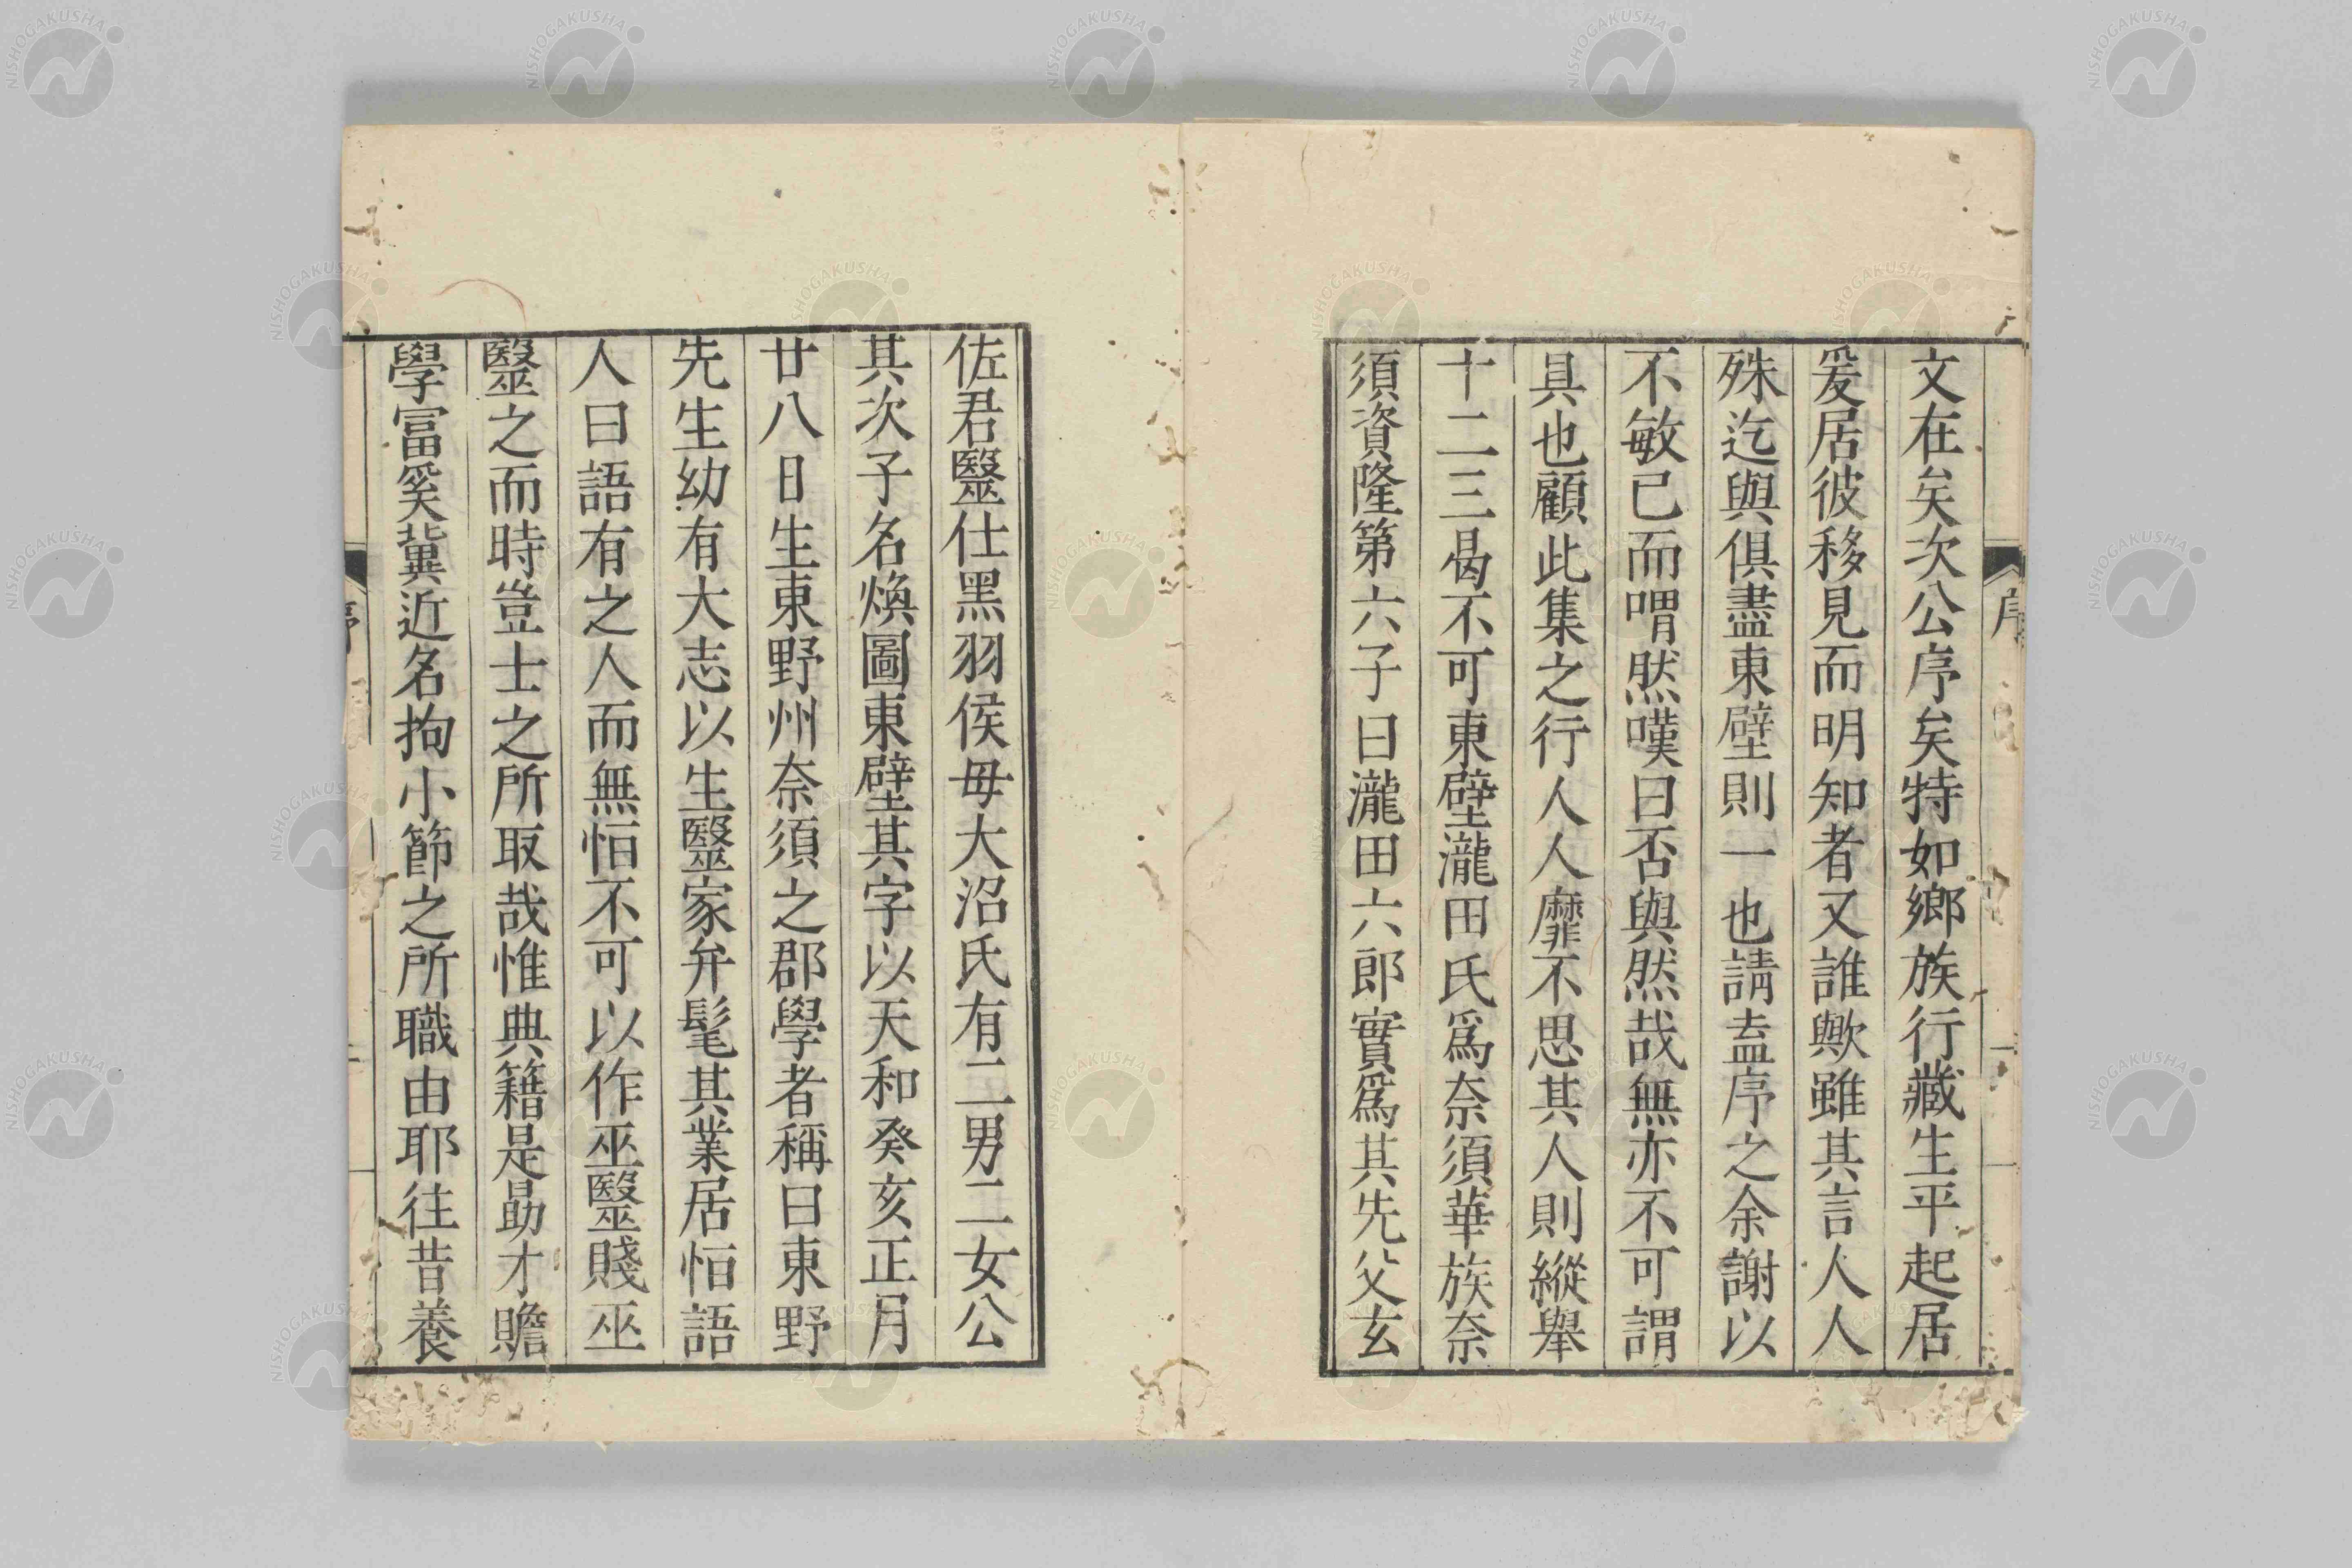 文在矣次公序矣特如鄉族行藏生平起居
爰居彼移見而明知者又誰歟雖其言人人
殊迄與俱盡東壁則一也請盍序之余謝以
不敏已而喟然嘆曰否與然哉無亦不可謂
具也顧此集之行人人靡不思其人則縱舉
十二三曷不可東壁瀧田氏爲奈須華族奈
須資隆第六子曰瀧田六郎實爲其先父玄
佐君醫仕黑羽侯母大沼氏有二男二女公
其次子名煥圖東壁其字以天和癸亥正月
廿八日生東野州奈須之郡學者稱曰東野
先生幼有大志以生醫家弁髦其業居恒語
人曰語有之人而無恒不可以作巫醫賤巫
醫之而時豈士之所取哉惟典籍是勗才贍
學富奚冀近名拘小節之所職由耶往昔養
序
序
NISHOGAKUSHA